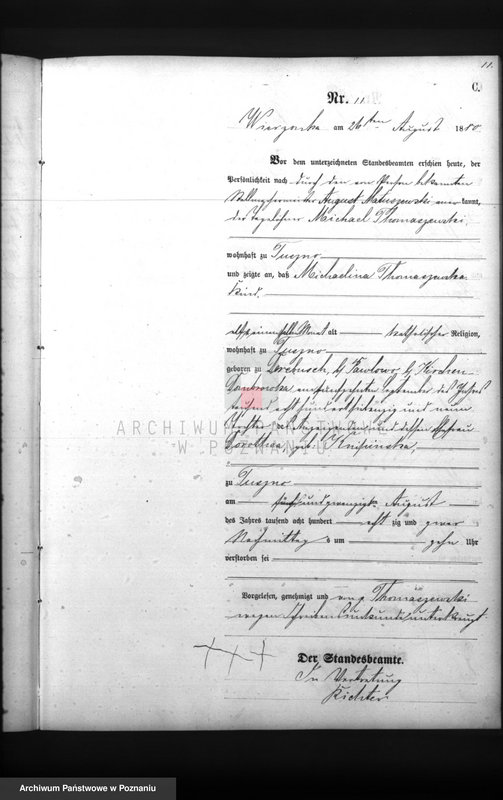 11.
C.
Nr. 11
am 26ten August 1880.
Vor dem unterzeichneten Standesbeamten erschien heute, der
Persönlichkeit nach durch den von Person bekannten
August Matuszewski anerkannt,
der Tagelöhner Michael Thomaszewski
wohnhaft zu
und zeigte an, daß Michaelina Thomaszewska
Kind,
Monat alt katholischer Religion,
wohnhaft zu
geboren zu bei Pawlowo bei
September des Jahres
tausend acht hundert siebenzig und neun
Tochter des Anzeigenden und dessen Ehefrau
Dorothea geb.
ARCHIWUM PAŃSTWOWE
W POZNANIU
zu
am fünfundzwanzigsten August
des Jahres tausend acht hundert acht zig und zwar
Nachmittag s um zehn Uhr
verstorben sei
Vorgelesen, genehmigt und von Thomaszewski
wegen Schreibensunkunde unterkreuzt
+++
Der Standesbeamte.
In Vertretung
Richter
Archiwum Państwowe w Poznaniu